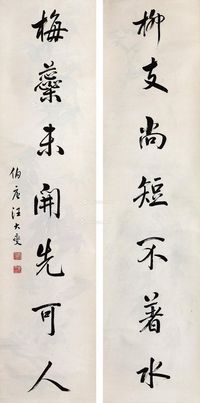 柳支尚短不著水
梅蘂未開先可人
伯唐汪大燮